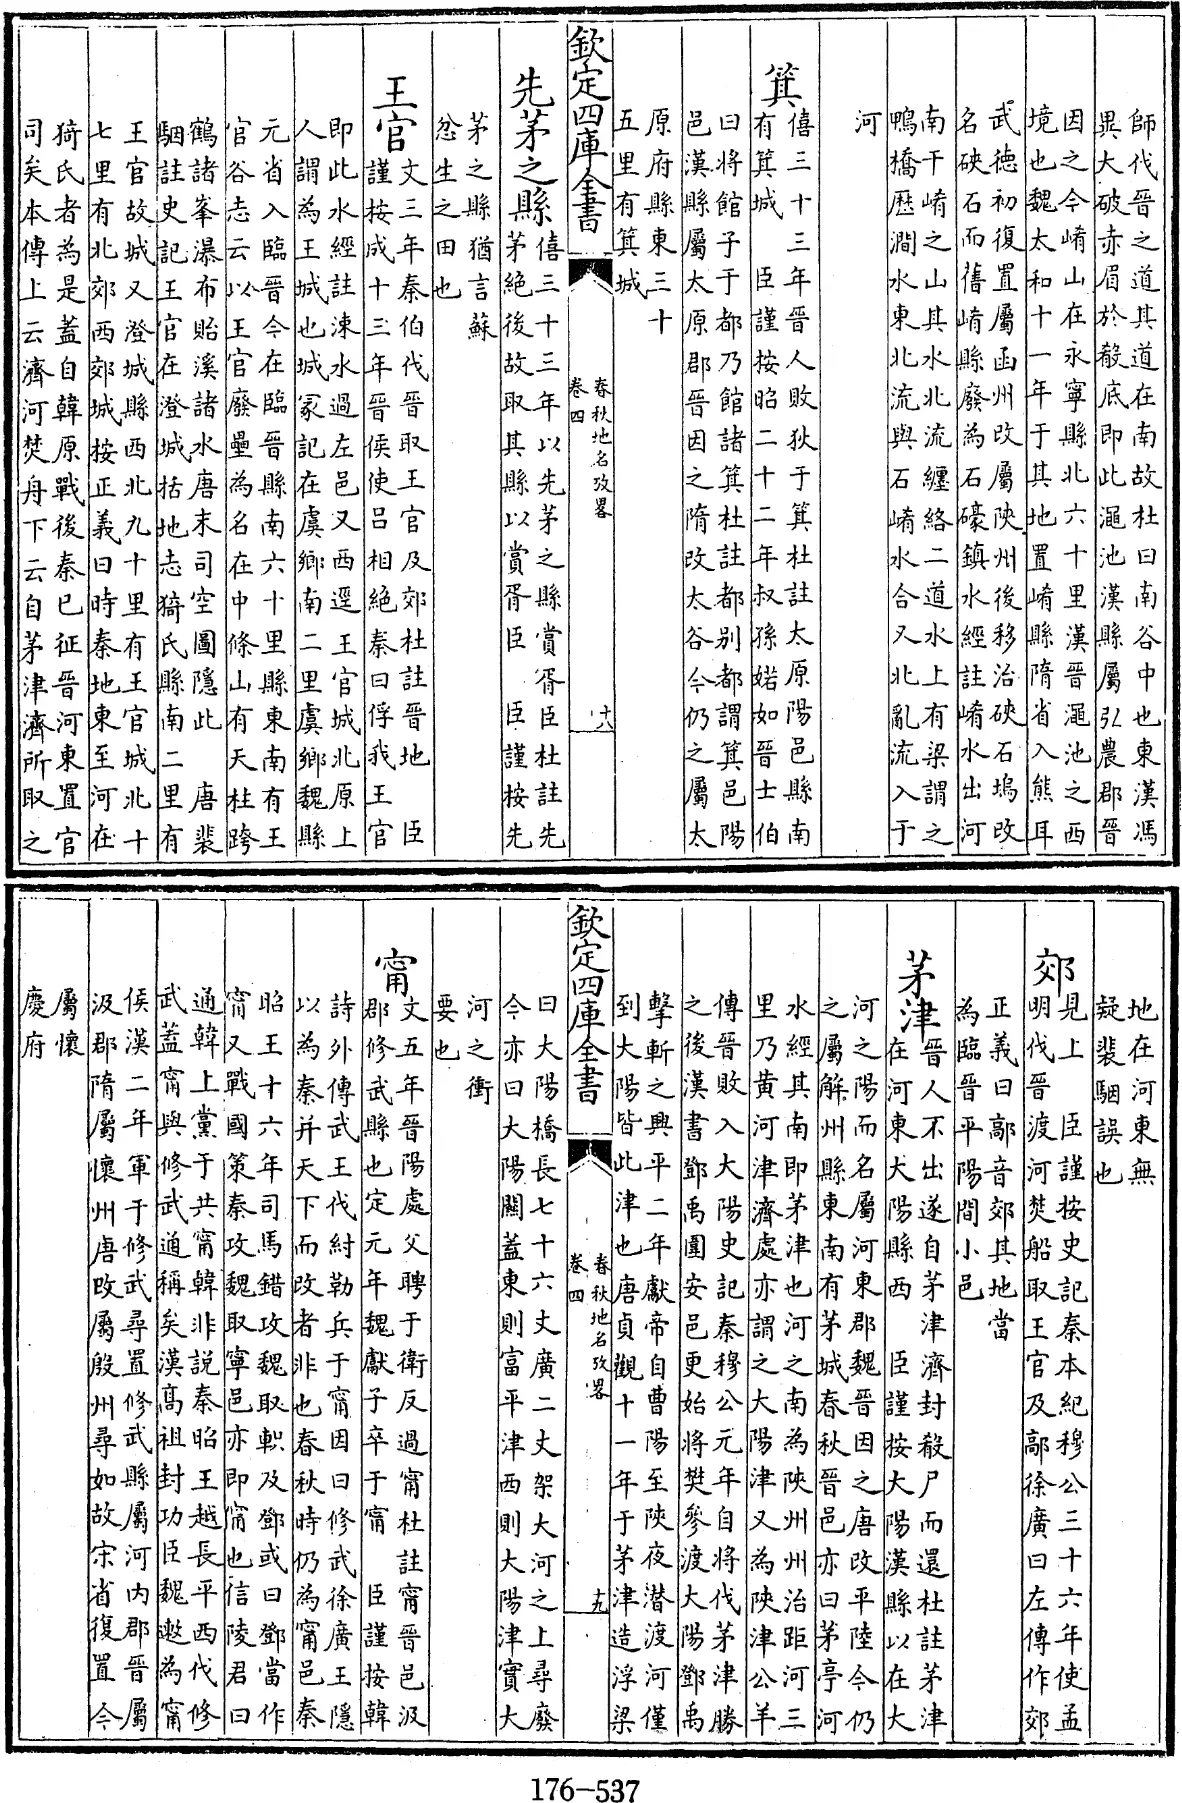 師伐晉之道其道在南故杜曰南谷中也東漢馮
異大破赤眉於殽底即此澠池漢縣屬弘農郡晉
因之今崤山在永寧縣北六十里漢晉澠池之西
境也魏太和十一年于其地置崤縣隋省入熊耳
武德初復置屬函州改屬陜州後移治硤石塢改
名硤石而舊崤縣廢為石壕鎮水經註崤水出河
南干崤之山其水北流纏絡二道水上有梁謂之
鴨橋歷澗水東北流與石崤水合又北亂流入于
河
箕
僖三十三年晉人敗狄于箕杜註太原陽邑縣南
有箕城 臣謹按昭二十二年叔孫婼如晉士伯
曰將館子于都乃館諸箕杜註都别都謂箕邑陽
邑漢縣屬太原郡晉因之隋改太谷今仍之屬太
原府縣東三十
五里有箕城
欽定四庫全書
春秋地名攷畧
卷四
十八
先茅之縣
僖三十三年以先茅之縣賞胥臣杜註先
茅絕後故取其縣以賞胥臣 臣謹按先
茅之縣猶言蘇
忿生之田也
王官
文三年秦伯伐晉取王官及郊杜註晉地 臣
謹按成十三年晉侯使呂相絕秦曰俘我王官
即此水經註涑水過左邑又西逕王官城北原上
人謂為王城也城冢記在虞鄉南二里虞鄉魏縣
元省入臨晉今在臨晉縣南六十里縣東南有王
官谷志云以王官廢壘為名在中條山有天柱跨
鶴諸峯瀑布貽溪諸水唐末司空圖隱此 唐裴
駰註史記王官在澄城括地志猗氏縣南二里有
王官故城又澄城縣西北九十里有王官城北十
七里有北郊西郊城按正義曰時秦地東至河在
猗氏者為是蓋自韓原戰後秦已征晉河東置官
司矣本傳上云濟河焚舟下云自茅津濟所取之
地在河東無
疑裴駰誤也
郊
見上 臣謹按史記秦本紀穆公三十六年使孟
明伐晉渡河焚船取王官及鄗徐廣曰左傳作郊
正義曰鄗音郊其地當
為臨晉平陽間小邑
茅津
晉人不出遂自茅津濟封殽尸而還杜註茅津
在河東大陽縣西 臣謹按大陽漢縣以在大
河之陽而名屬河東郡魏晉因之唐改平陸今仍
之屬解州縣東南有茅城春秋晉邑亦曰茅亭河
水經其南即茅津也河之南為陜州州治距河三
里乃黄河津濟處亦謂之大陽津又為陜津公羊
傳晉敗入大陽史記秦穆公元年自將伐茅津勝
之後漢書鄧禹圍安邑更始將樊參渡大陽鄧禹
擊斬之興平二年獻帝自曹陽至陜夜潜渡河僅
到大陽皆此津也唐貞觀十一年于茅津造浮梁
欽定四庫全書
春秋地名攷畧
卷四
十九
曰大陽橋長七十六丈廣二丈架大河之上尋廢
今亦曰大陽關蓋東則富平津西則大陽津實大
河之衝
要也
甯
文五年晉陽處父聘于衛反過甯杜註甯晉邑汲
郡修武縣也定元年魏獻子卒于甯 臣謹按韓
詩外傳武王伐紂勒兵于甯因曰修武徐廣王隱
以為秦并天下而改者非也春秋時仍為甯邑秦
昭王十六年司馬錯攻魏取軹及鄧或曰鄧當作
甯又戰國策秦攻魏取寧邑亦即甯也信陵君曰
通韓上黨于共甯韓非說秦昭王越長平西伐修
武蓋甯與修武通稱矣漢高祖封功臣魏遬為甯
侯漢二年軍于修武尋置修武縣屬河内郡晉屬
汲郡隋屬懷州唐改屬殷州尋如故宋省復置今
屬懷
慶府
176-537